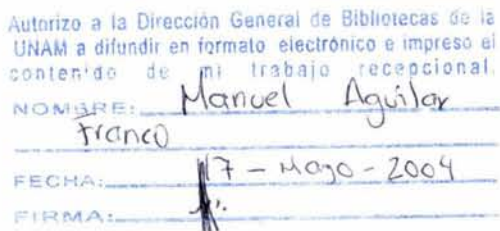 Autorizo a la Dirección General de Bibliotecas de la
UNAM a difundir en formato electrónico e impreso el
contenido de mi trabajo recepcional.
NOMBRE: Manuel Aguilar
Franco
FECHA: 17 - Mayo - 2004
FIRMA: